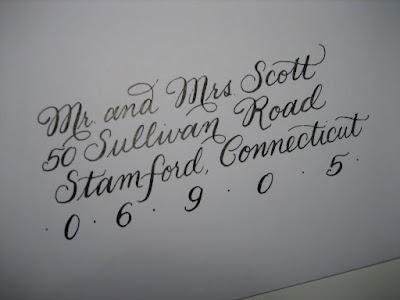 Mr. and Mrs Scott
50 Sullivan Road
Stamford, Connecticut
· 0 · 6 · 9 · 0 · 5 ·